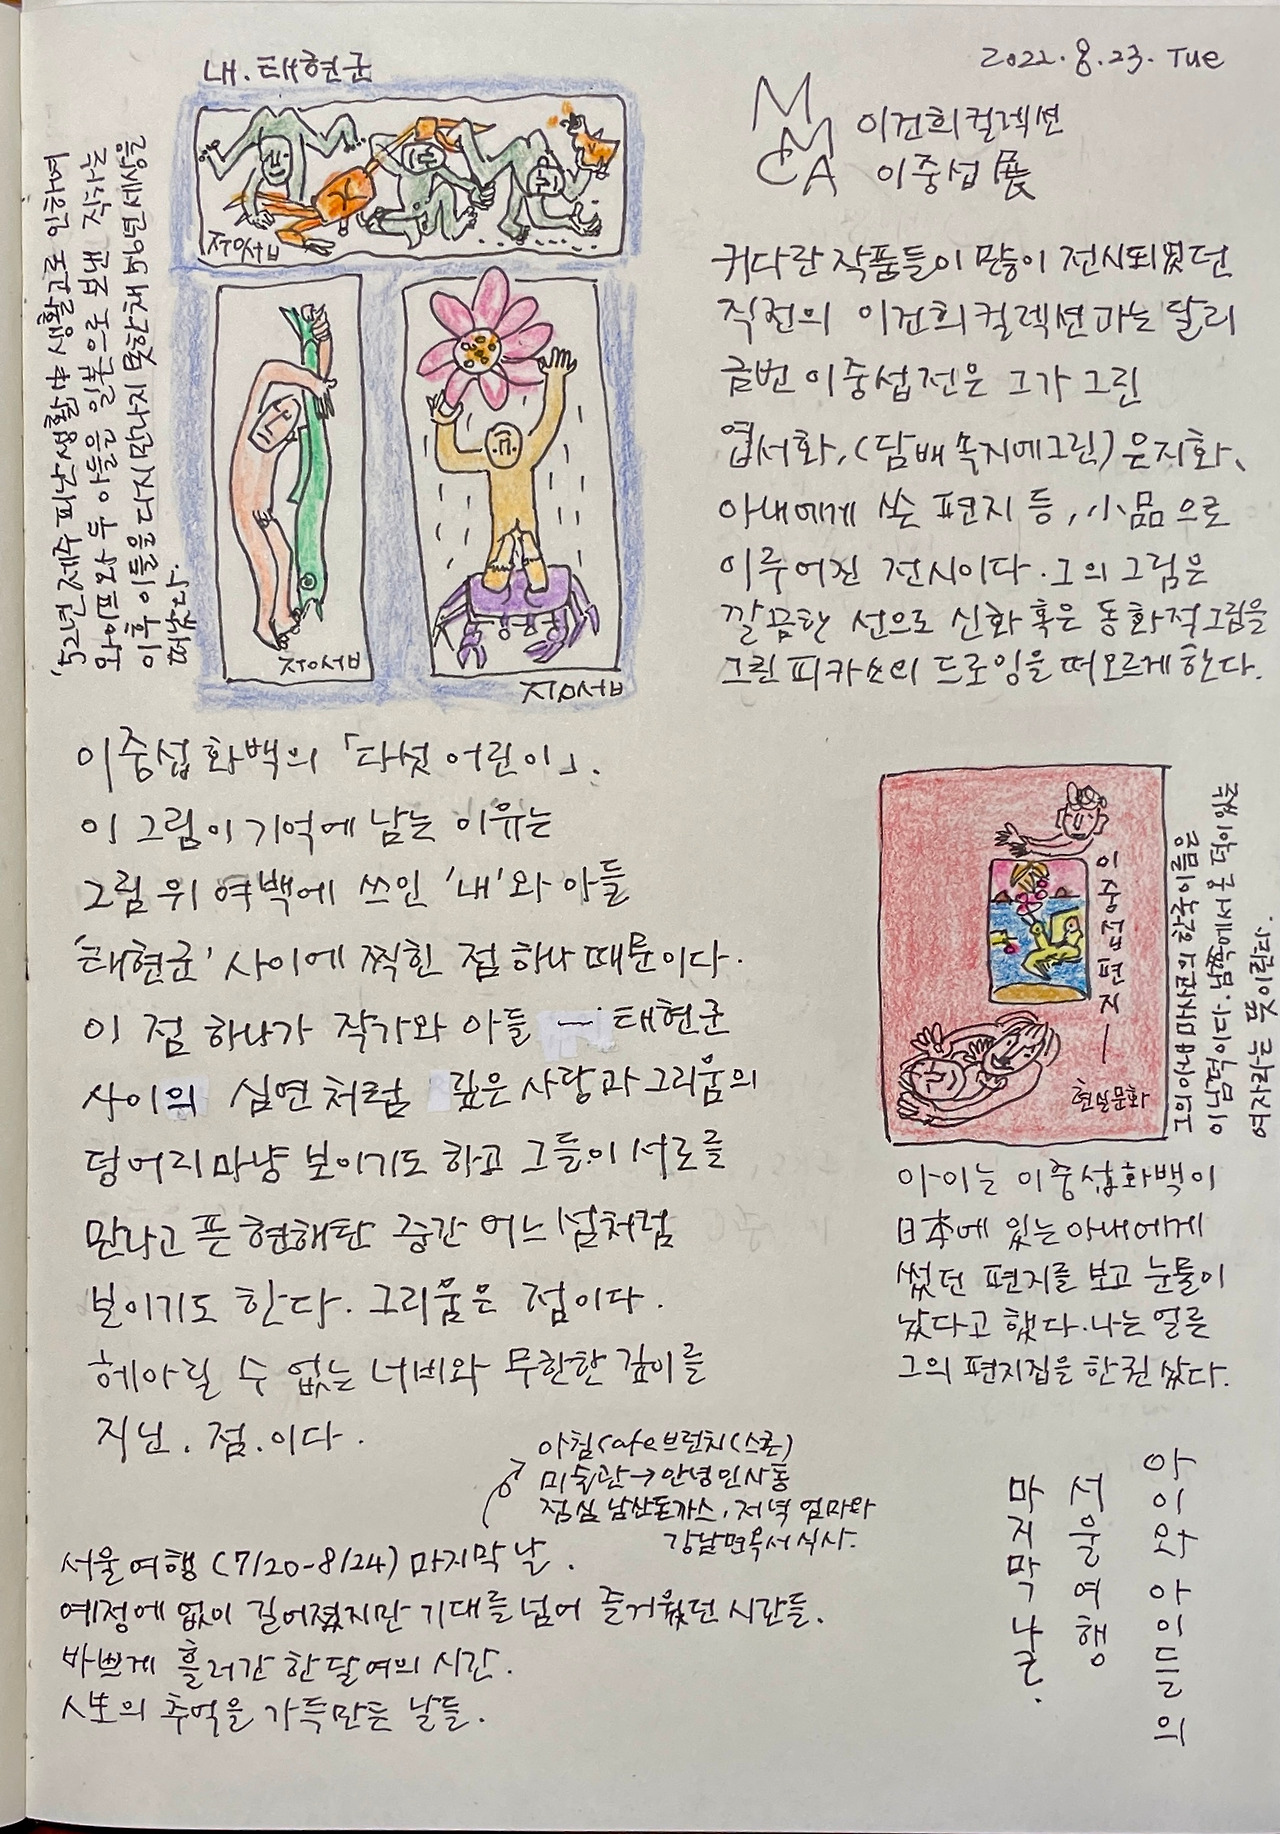 2022.8.23. Tue
MMCA
이건희컬렉션
이중섭展
내.태현군
ㅈㅜㅇㅅㅓㅂ
ㅈㅜㅇㅅㅓㅂ
ㅈㅜㅇㅅㅓㅂ
'52년 제주 피난 생활中 생활고로 인하여
와이프와 두 아들을 일본으로 보낸 작가는
이후 이들을 다시 만나지 못한채 56년 세상을
떠났다.
커다란 작품들이 많이 전시되었던
직전의 이건희컬렉션과는 달리
금번 이중섭전은 그가 그린
엽서화, (담배 속지에그린) 은지화,
아내에게 쓴 편지 등, 小品으로
이루어진 전시이다. 그의 그림은
깔끔한 선으로 신화 혹은 동화적그림을
그린 피카소의 드로잉을 떠오르게 한다.
이중섭 화백의 「다섯 어린이」.
이 그림이 기억에 남는 이유는
그림 위 여백에 쓰인 '내'와 아들
'태현군' 사이에 찍힌 점 하나 때문이다.
이 점 하나가 작가와 아들 태현군
사이의 심연처럼 깊은 사랑과 그리움의
덩어리 마냥 보이기도 하고 그들이 서로를
만나고 픈 현해탄 중간 어느 섬처럼
보이기도 한다. 그리움은 점이다.
헤아릴 수 없는 너비와 무한한 깊이를
지닌. 점.이다.
이중섭편지
현실문화
그의 아내 마사코의 한국이름은
이남덕이다. 남쪽에서 온 덕이 있는
여자라는 뜻이란다.
아이는 이중섭화백이
日本에 있는 아내에게
썼던 편지를 보고 눈물이
났다고 했다. 나는 얼른
그의 편지집을 한권 샀다.
아침 cafe브런치(스콘)
미술관→안녕인사동
점심 남산돈가스, 저녁 엄마와
강남면옥서 식사.
서울여행 (7/20-8/24) 마지막 날.
예정에 없이 길어졌지만 기대를 넘어 즐거웠던 시간들.
바쁘게 흘러간 한달여의 시간.
人生의 추억을 가득만든 날들.
아이와 아이들의
서울여행
마지막 날.